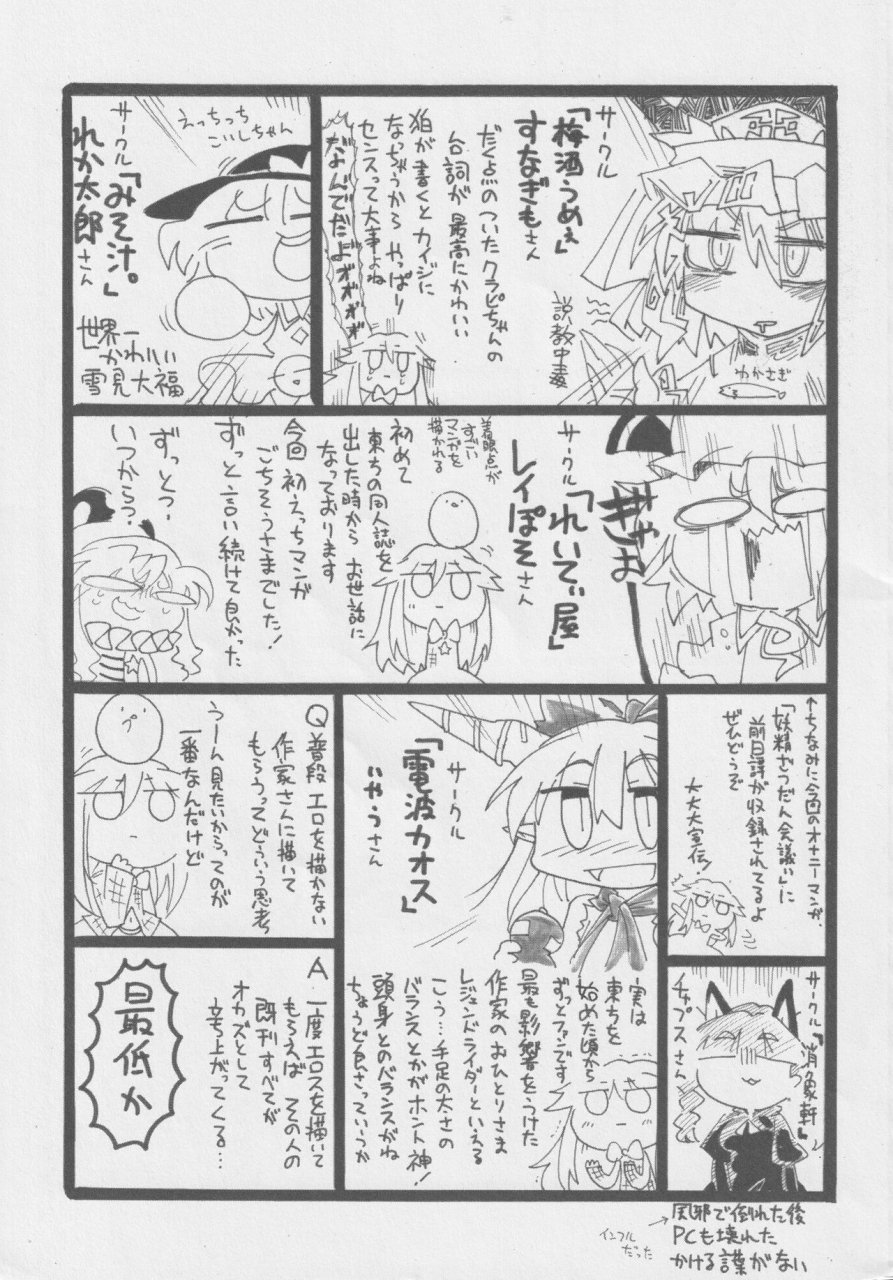 サークル
「梅酒うめぇ」
すなぎもさん
だく点のついたクラピちゃんの
台詞が最高にかわいい
狛が書くとカイジに
なっちゃうから やっぱり
センスって大事よね
なんでだよ
説教中毒
わかさぎ
サークル
「みそ汁。」
れか太郎さん
えっちっち
こいしちゃん
世界一
かわいい
雪見大福
ぎゃお
サークル
「れいてぃ屋」
レイぽそさん
着眼点が
すごい
マンガを
描かれる
初めて
東方の同人誌を
出した時から お世話に
なっております
今回 初えっちマンガ
ごちそうさまでした!
ずっと言い続けて良かった
ずっとっ?
いつからっ?
←ちなみに今回のオナニーマンガ、
「妖精ざつだん会議ぃ」に
前日譚が収録されてるよ
ぜひどうぞ
大大大宣伝!
サークル
「電波カオス」
いやうさん
実は
東方を
始めた頃から
ずっとファンです
最も影響をうけた
作家のおひとりさま
レジェンドライダーといえる
こう…手足の太さの
バランスとかがホント神!
頭身とのバランスがね
ちょうど良さっていうか
Q 普段 エロを描かない
作家さんに描いて
もらうってどういう思考
うーん見たいからってのが
一番なんだけど
A 一度エロスを描いて
もらえば その人の
既刊すべてが
オカズとして
立ち上がってくる…
最低か
サークル
チャプスさん
→風邪で倒れた後
PCも壊れた
かける言葉がない
インフル
だった